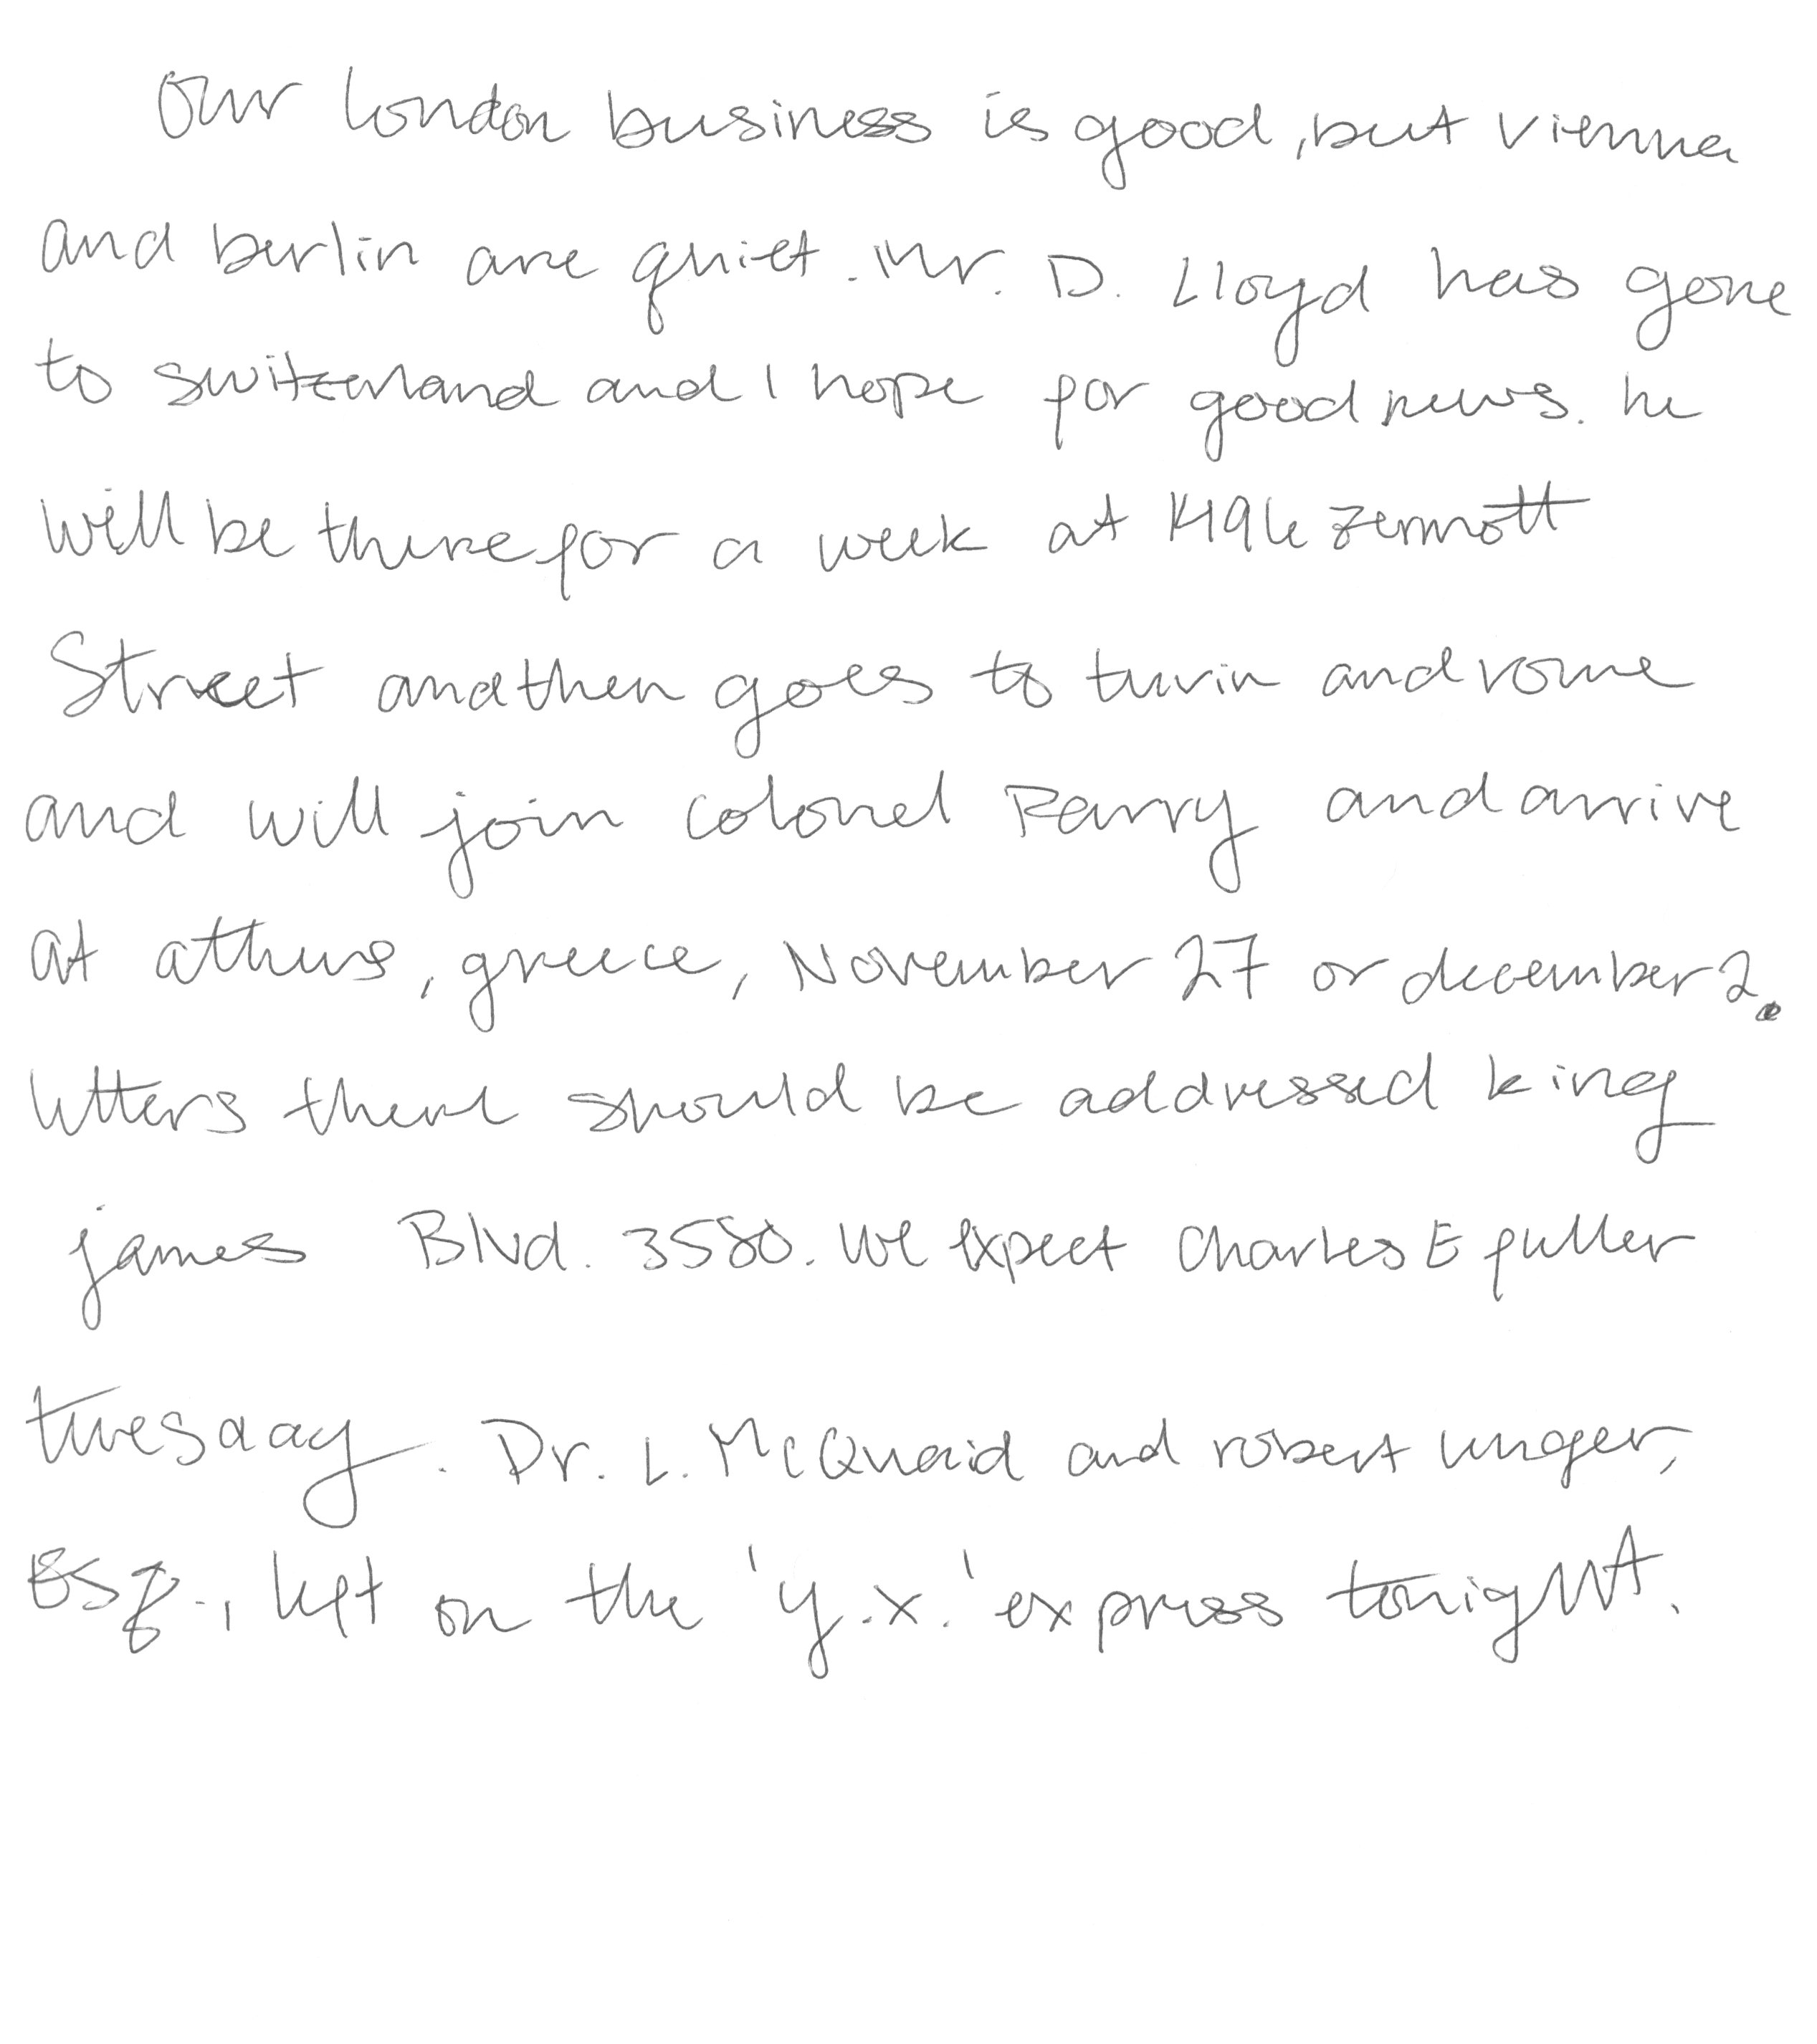 Our london business is good, but vienna
and berlin are quiet. Mr. D. Lloyd has gone
to switzerland and I hope for good news. he
will be there for a week at 1496 zermott
Street and then goes to turin and rome
and will join colonel Parry and arrive
at athens, greece, November 27 or december 2.
letters there should be addressed king
james Blvd. 3580. We expect Charles E fuller
tuesday. Dr. L. McQuaid and robert unger,
ESq., left on the 'y.x.' express tonight.